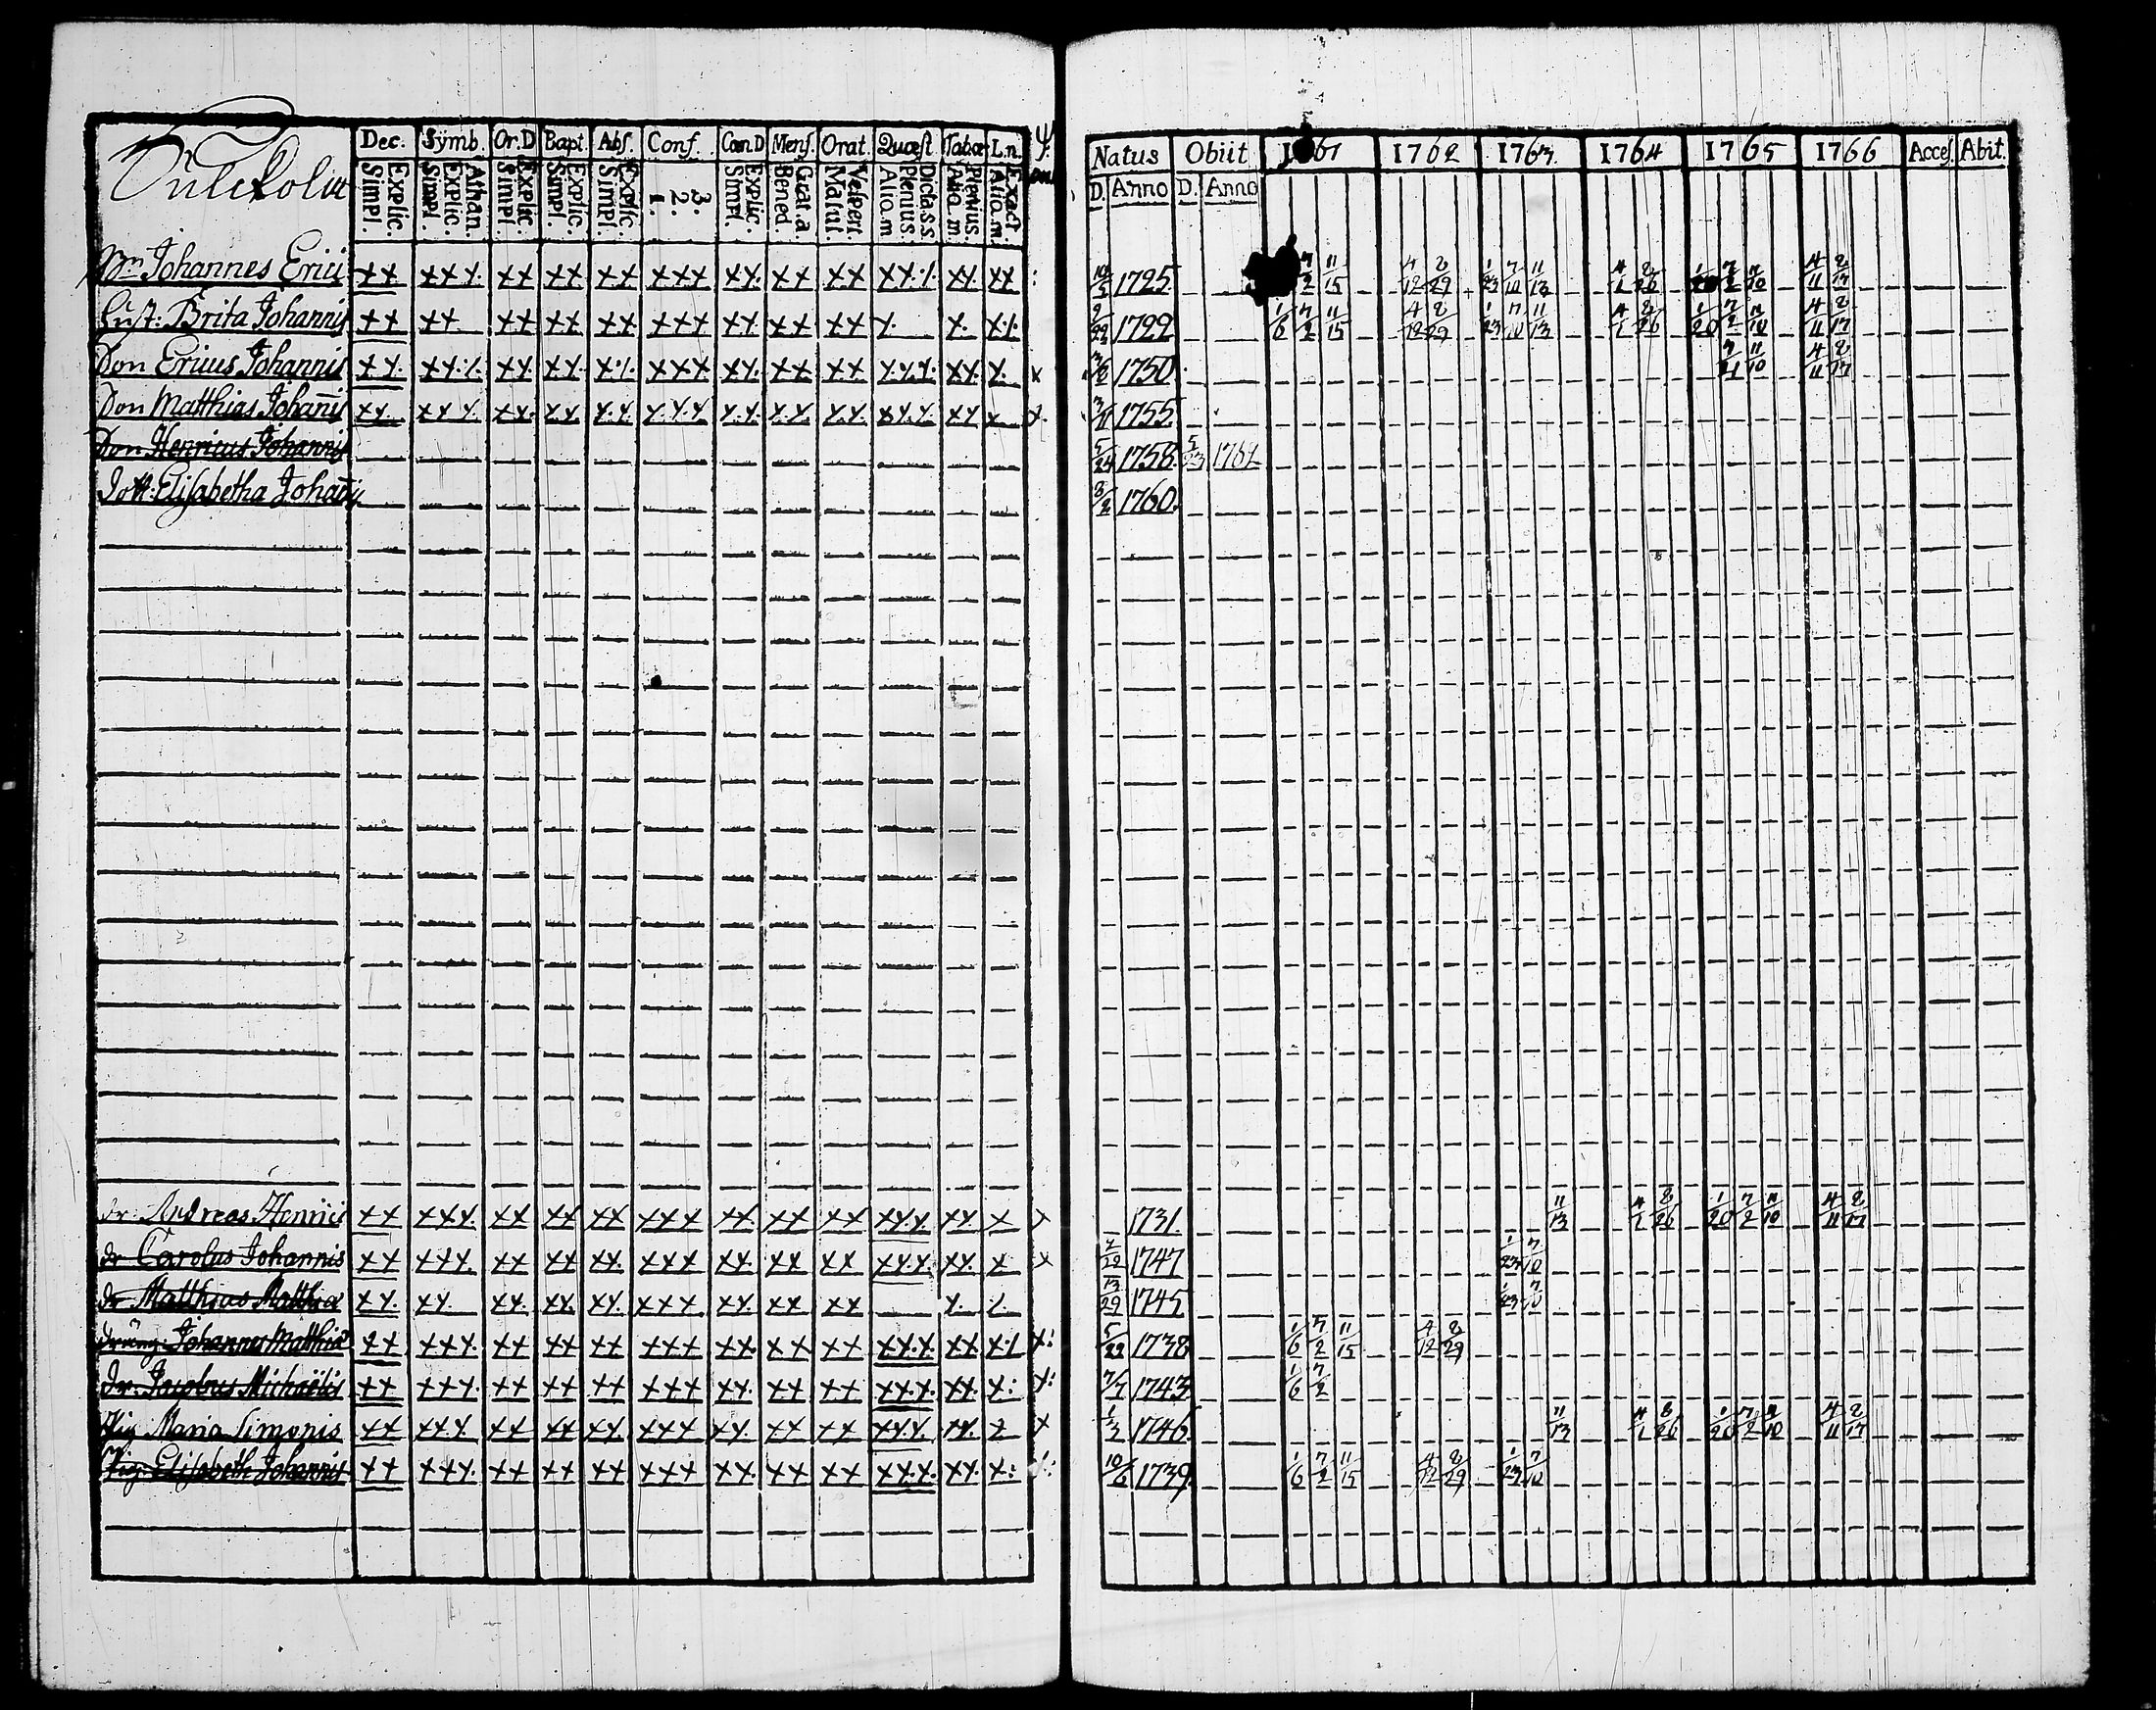 Dec. Sÿmb. Or.D Bapt. Abſ. Conf. Cœn.D Menſ. Orat. Quæſt. Tabæ L.n.
Explic. Simpl. Athan. Explic. Simpl. Explic. Simpl. Explic. Simpl. Explic. Simpl. 3. 2. 1. Explic. Simpl. Grat.a. Bened. Veſpert. Matut. Dicta.s.s. Plenius. Alio.m. Plenius. Aliq.m. Exact. Alio.m.
Natus Obiit 1762 1763 1764 1765 1766 Acceſ. Abit.
D. Anno D. Anno
Johannes Erici xx xxx xx xx xx xxx xx xx xx xxx xx xx 10/5 1725 7/2 11/15 4/12 8/29 1/23 7/10 11/13 4/1 8/26 1/20 7/2 11/10 4/11 8/17
Hust. Brita Johannis xx xx xx xx xx xxx xx xx xx x x xx 1722 1/6 7/2 11/15 4/12 8/29 1/23 7/10 11/13 4/1 8/26 1/20 7/2 11/10 4/11 8/17
Son Ericus Johannis xx xxx xx xx xx xxx xx xx xx xxx xx x x 1750 11/10 4/11 8/17
Son Matthias Johan̄is xx xxx xx xx xx xxx xx xx xx xxx xx x x 3/11 1755
Son Henricus Johannis 5/24 1758 5/23 1762
Dott: Eliſabetha 1760
dr: Andreas Henrici xx xxx xx xx xx xxx xx xx xx xxx xx x x 1731 11/13 4/1 8/26 1/20 7/2 11/10 4/11 8/17
dr Carolus Johannis xx xxx xx xx xx xxx xx xx xx xxx xx x x 1747 1/23 7/10
dr Matthias Matthiæ xx xx xx xx xx xxx xx xx xx x x 1745 1/23 7/10
Johannes Matthiæ xx xxx xx xx xx xxx xx xx xx xxx xx xx x: 5/22 1738 1/6 7/2 11/15 4/12 8/29
Dr: Jacobus Michaëlis xx xxx xx xx xx xxx xx xx xx xxx xx x: x: 1743 1/6 7/2
Pig Maria Simonis xx xxx xx xx xx xxx xx xx xx xxx xx x x 1746 11/13 4/1 8/26 1/20 7/2 11/10 4/11 8/17
Pig: Eliſabeth Johannis xx xxx xx xx xx xxx xx xx xx xxx xx x: x: 10/6 1739 1/6 7/2 11/15 4/12 8/29 1/23 7/10